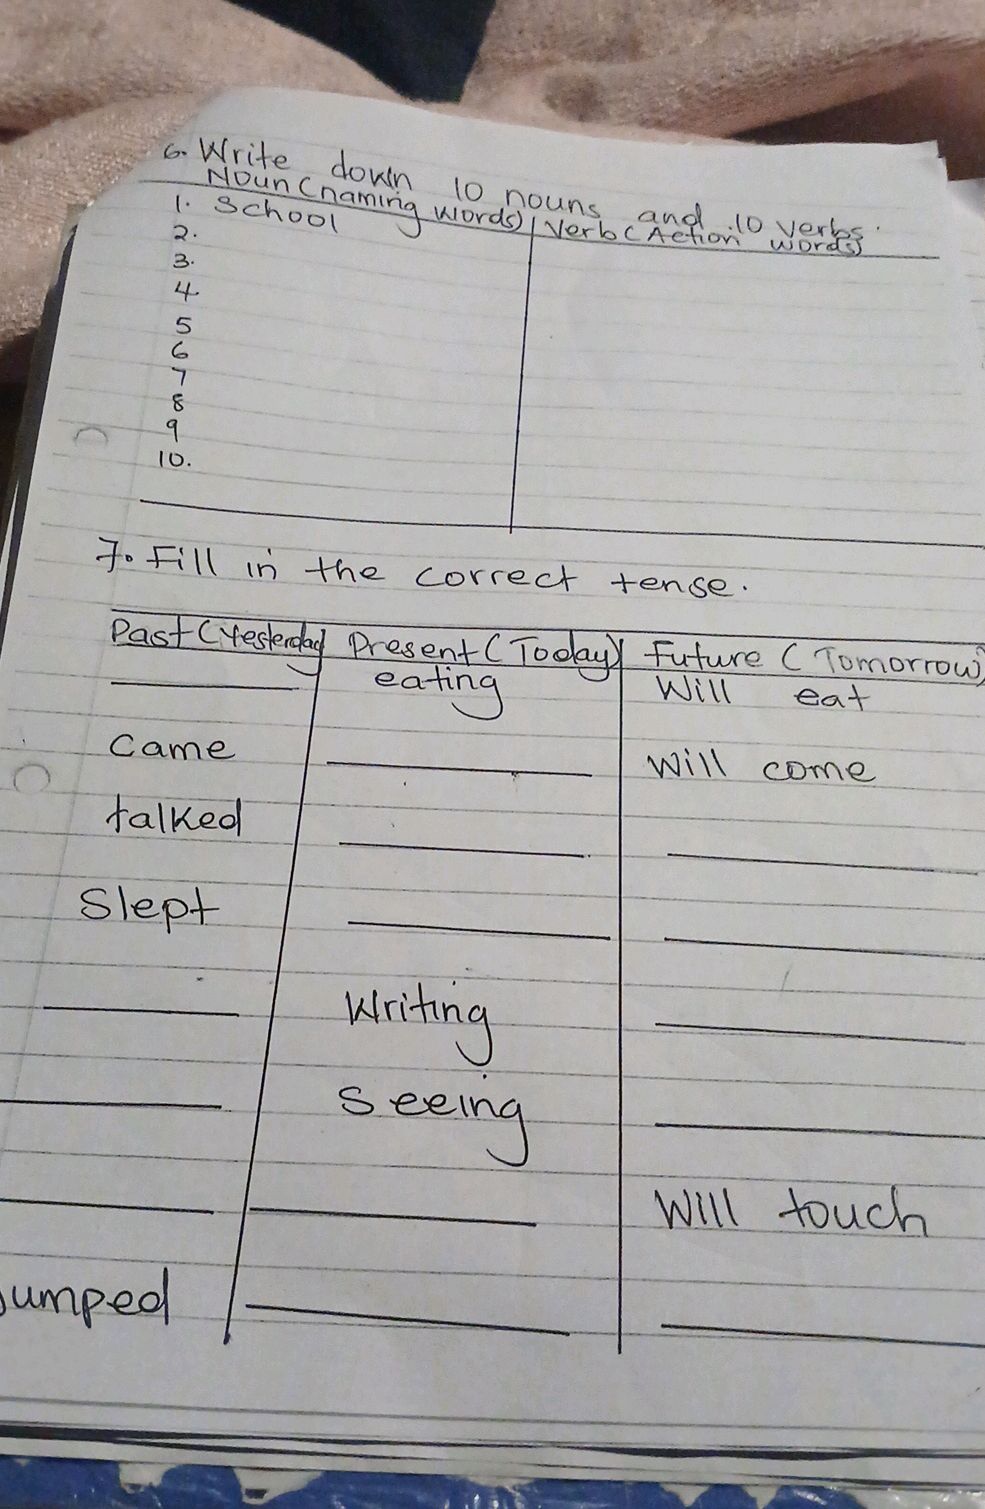 6. Write down 10 nouns and 10 verbs.
Noun (naming words) Verb (Action words)
1. School
2.
3.
4
5
6
7
8
9
10.
7. Fill in the correct tense.
Past (Yesterday Present (Today) Future (Tomorrow)
eating Will eat
came Will come
talked
Slept
Writing
Seeing
Will touch
Jumped